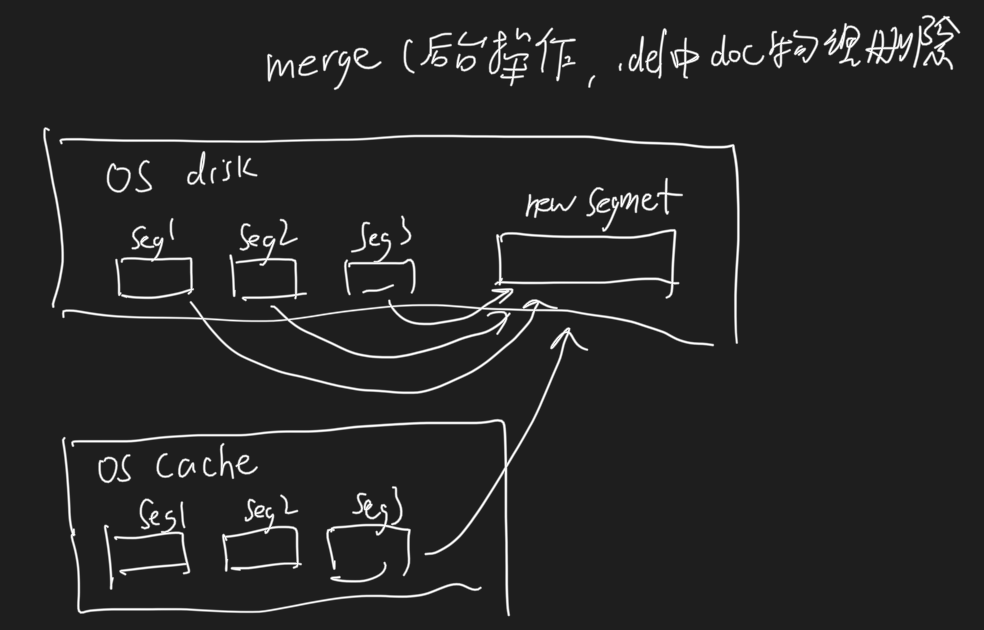 merge (后台操作, .del中doc物理删除
OS disk
new segmet
seg1 seg2 seg3
OS cache
seg1 seg2 seg3